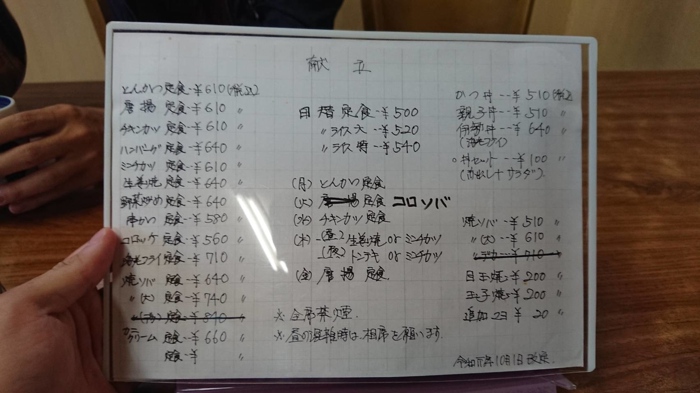 献立
とんかつ定食-¥610(税込)
唐揚定食-¥610 〃
チキンカツ定食-¥610 〃
ハンバーグ定食-¥640 〃
ミンチカツ定食-¥640 〃
生姜焼定食-¥640 〃
野菜炒め定食-¥640 〃
串かつ定食-¥580 〃
コロッケ定食-¥560 〃
海老フライ定食-¥710 〃
焼ソバ定食-¥640 〃
〃(大)定食-¥740 〃
定食-¥840 〃
クリーム定食-¥660 〃
定食-¥ 〃
日替定食-¥500
〃ライス大-¥520
〃ライス特-¥540
(月)とんかつ定食
(火)唐揚定食 コロソバ
(水)チキンカツ定食
(木)(昼)生姜焼 or ミンチカツ
(夜)トンテキ or ミンチカツ
(金)唐揚定食
※全席禁煙
※昼の混雑時は、相席を願います。
かつ丼--¥510(税込)
親子丼--¥510 〃
伊勢丼--¥640 〃
(海老フライ)
○丼セット--¥100 〃
(赤出し+サラダ)
焼ソバ--¥510 〃
〃(大)-¥610 〃
¥710 〃
目玉焼-¥200 〃
玉子焼-¥200 〃
追加マヨ ¥20 〃
10月1日改定